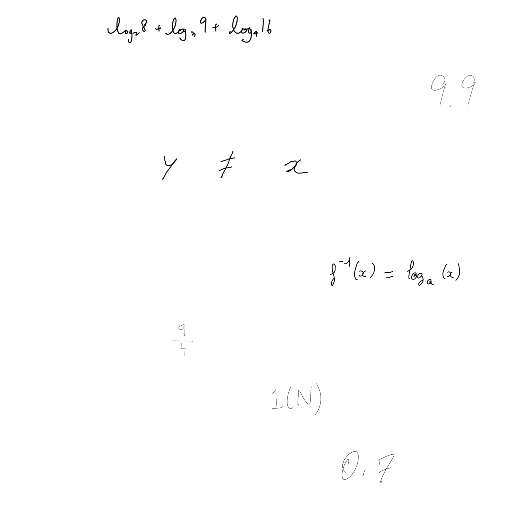 log₂8 + log₃9 + log₄16
9.9
y ≠ x
f⁻¹(x) = logₐ(x)
9/4
1(N)
0.7